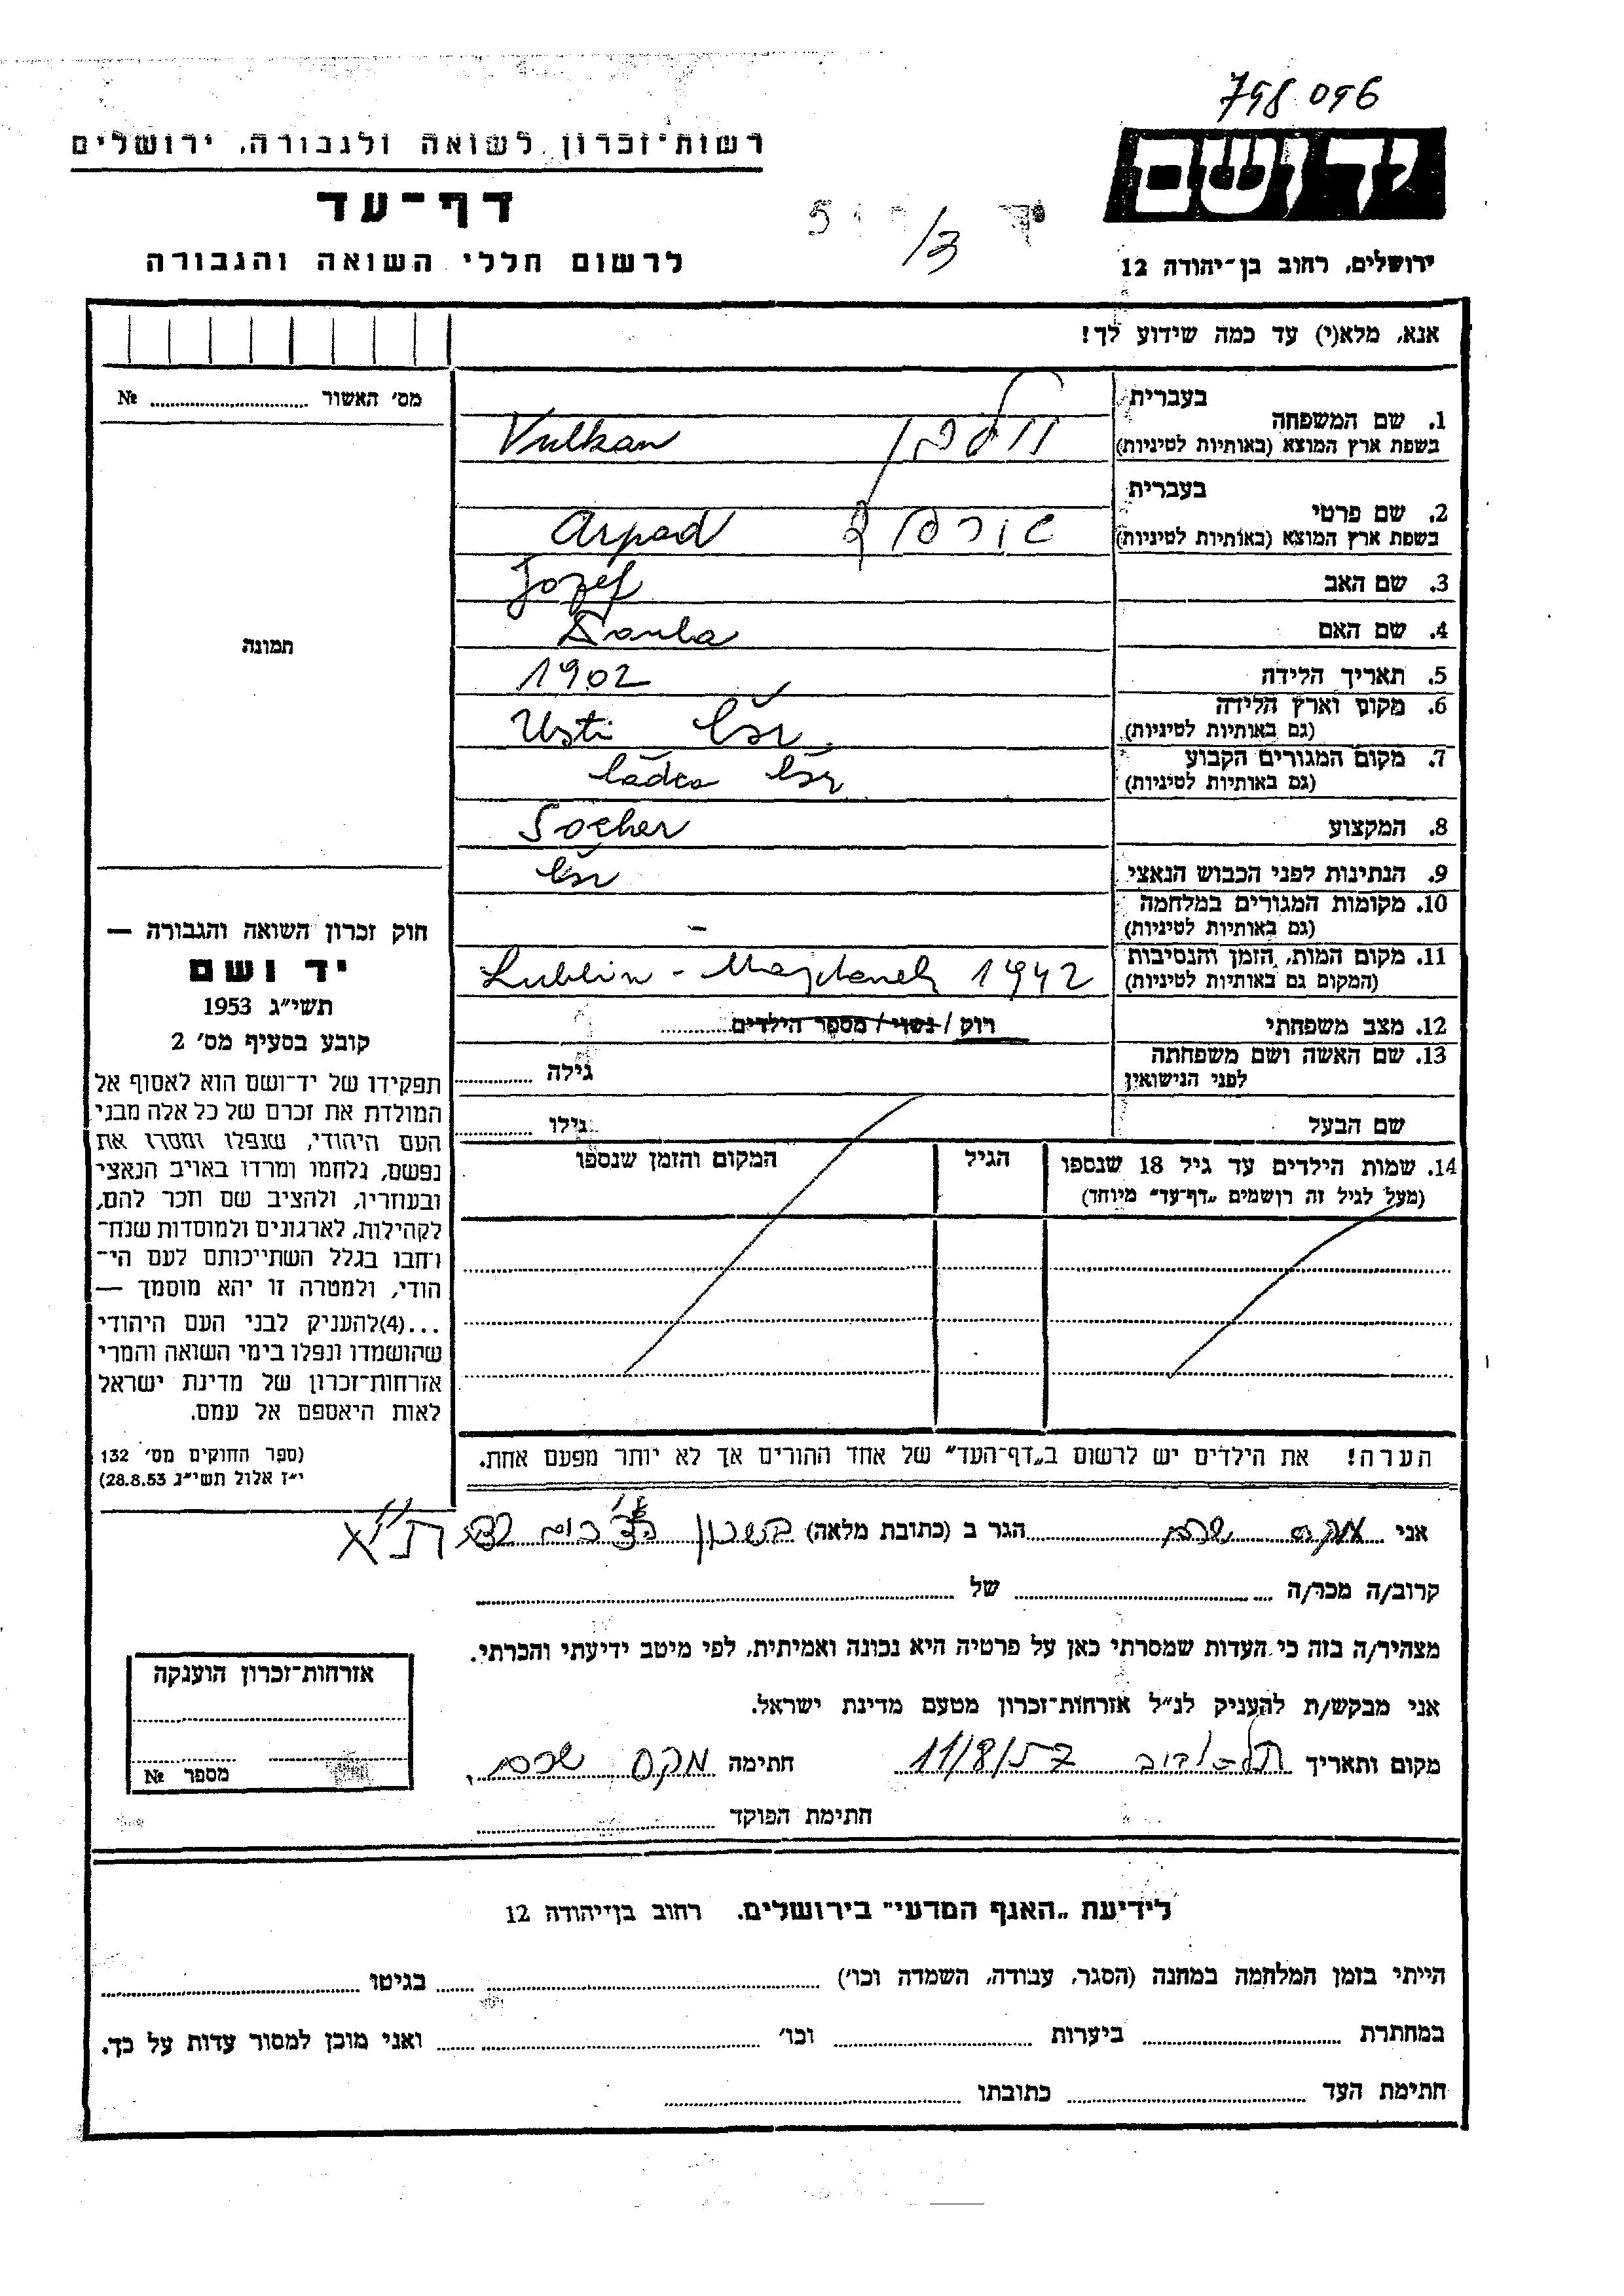 798096
רשות־זכרון לשואה ולגבורה, ירושלים
יד ושם
דף־עד
לרשום חללי השואה והגבורה
ירושלים, רחוב בן־יהודה 12
/3
אנא, מלא(י) עד כמה שידוע לך!
מס׳ האשור № 
תמונה
1. שם המשפחה
בעברית
בשפת ארץ המוצא (באותיות לטיניות)
וולקן Vulkan
2. שם פרטי
בעברית
בשפת ארץ המוצא (באותיות לטיניות)
Arpad
3. שם האב Jozef
4. שם האם
5. תאריך הלידה 1902
6. מקום וארץ הלידה Usti Čsr.
(גם באותיות לטיניות)
7. מקום המגורים הקבוע Čsr
(גם באותיות לטיניות)
8. המקצוע Socher
9. הנתינות לפני הכבוש הנאצי Čsr
10. מקומות המגורים במלחמה –
(גם באותיות לטיניות)
11. מקום המות, הזמן והנסיבות Lublin - Majdanek 1942
(המקום גם באותיות לטיניות)
12. מצב משפחתי רווק / נשוי / מספר הילדים
13. שם האשה ושם משפחתה גילה
לפני הנישואין
שם הבעל גילו
14. שמות הילדים עד גיל 18 שנספו הגיל המקום והזמן שנספו
(מעל לגיל זה רושמים „דף־עד״ מיוחד)
הערה! את הילדים יש לרשום ב„דף־העד״ של אחד ההורים אך לא יותר מפעם אחת.
חוק זכרון השואה והגבורה —
יד ושם
תשי״ג 1953
קובע בסעיף מס׳ 2
תפקידו של יד־ושם הוא לאסוף אל
המולדת את זכרם של כל אלה מבני
העם היהודי, שנפלו ומסרו את
נפשם, נלחמו ומרדו באויב הנאצי
ובעוזריו, ולהציב שם וזכר להם,
לקהילות, לארגונים ולמוסדות שנח־
רחבו בגלל השתייכותם לעם הי־
הודי, ולמטרה זו יהא מוסמך —
...(4)להעניק לבני העם היהודי
שהושמדו ונפלו בימי השואה והמרי
אזרחות־זכרון של מדינת ישראל
לאות היאספם אל עמם.
(ספר החוקים מס׳ 132
י״ז אלול תשי״ג 28.8.53)
אני הגר ב (כתובת מלאה) ת״א
קרוב/ה מכר/ה של
מצהיר/ה בזה כי העדות שמסרתי כאן על פרטיה היא נכונה ואמיתית, לפי מיטב ידיעתי והכרתי.
אני מבקש/ת להעניק לנ״ל אזרחות־זכרון מטעם מדינת ישראל.
מקום ותאריך תל-אביב 11/8/57 חתימה מקס
חתימת הפוקד
אזרחות־זכרון הוענקה
מספר №
לידיעת „האגף המדעי״ בירושלים. רחוב בן־יהודה 12
הייתי בזמן המלחמה במחנה (הסגר, עבודה, השמדה וכו׳) בגיטו
במחתרת ביערות וכו׳ ואני מוכן למסור עדות על כך.
חתימת העד כתובתו